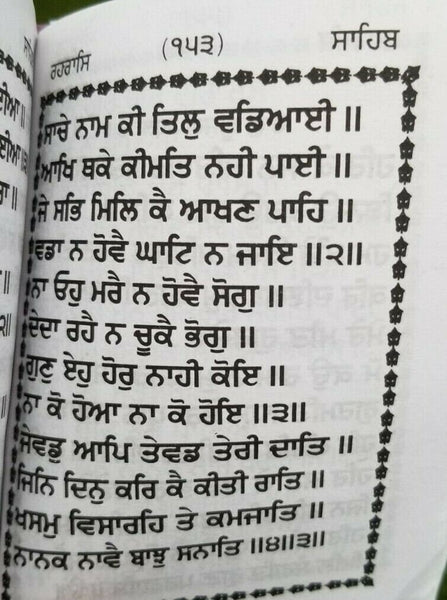 ਰਹਰਾਸਿ (੧੫੩) ਸਾਹਿਬ
ਸਾਚੇ ਨਾਮ ਕੀ ਤਿਲੁ ਵਡਿਆਈ ॥
ਆਖਿ ਥਕੇ ਕੀਮਤਿ ਨਹੀ ਪਾਈ ॥
ਜੇ ਸਭਿ ਮਿਲਿ ਕੈ ਆਖਣ ਪਾਹਿ ॥
ਵਡਾ ਨ ਹੋਵੈ ਘਾਟਿ ਨ ਜਾਇ ॥੨॥
ਨਾ ਓਹੁ ਮਰੈ ਨ ਹੋਵੈ ਸੋਗੁ ॥
ਦੇਦਾ ਰਹੈ ਨ ਚੂਕੈ ਭੋਗੁ ॥
ਗੁਣੁ ਏਹੁ ਹੋਰੁ ਨਾਹੀ ਕੋਇ ॥
ਨਾ ਕੋ ਹੋਆ ਨਾ ਕੋ ਹੋਇ ॥੩॥
ਜੇਵਡੁ ਆਪਿ ਤੇਵਡ ਤੇਰੀ ਦਾਤਿ ॥
ਜਿਨਿ ਦਿਨੁ ਕਰਿ ਕੈ ਕੀਤੀ ਰਾਤਿ ॥
ਖਸਮੁ ਵਿਸਾਰਹਿ ਤੇ ਕਮਜਾਤਿ ॥
ਨਾਨਕ ਨਾਵੈ ਬਾਝੁ ਸਨਾਤਿ ॥੪॥੩॥